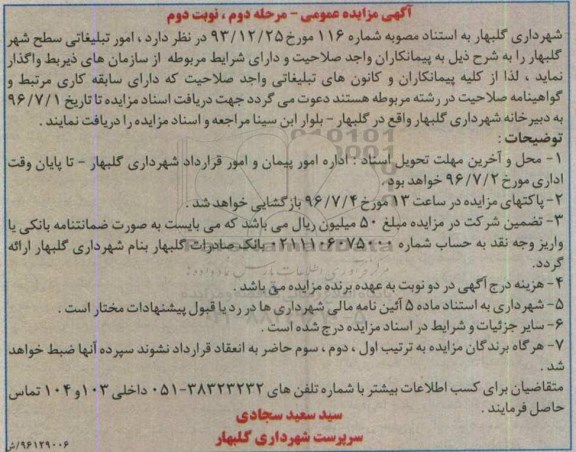 آگهی مزایده عمومی - مرحله دوم ، نوبت دوم
شهرداری گلبهار به استناد مصوبه شماره ۱۱۶ مورخ ۹۳/۱۲/۲۵ در نظر دارد ، امور تبلیغاتی سطح شهر
گلبهار را به شرح ذیل به پیمانکاران واجد صلاحیت و دارای شرایط مربوطه از سازمان های ذیربط واگذار
نماید ، لذا از کلیه پیمانکاران و کانون های تبلیغاتی واجد صلاحیت که دارای سابقه کاری مرتبط و
گواهینامه صلاحیت در رشته مربوطه هستند دعوت می گردد جهت دریافت اسناد مزایده تا تاریخ ۹۶/۷/۱
به دبیرخانه شهرداری گلبهار واقع در گلبهار - بلوار ابن سینا مراجعه و اسناد مزایده را دریافت نمایند .
توضیحات :
۱- محل و آخرین مهلت تحویل اسناد : اداره امور پیمان و امور قرارداد شهرداری گلبهار - تا پایان وقت
اداری مورخ ۹۶/۷/۲ خواهد بود .
۲- پاکتهای مزایده در ساعت ۱۳ مورخ ۹۶/۷/۴ بازگشایی خواهد شد .
۳- تضمین شرکت در مزایده مبلغ ۵۰ میلیون ریال می باشد که می بایست به صورت ضمانتنامه بانکی یا
واریز وجه نقد به حساب شماره ۰۲۱۱۱۰۶۰۷۵۰۰۰ بانک صادرات گلبهار بنام شهرداری گلبهار ارائه
گردد.
۴- هزینه درج آگهی در دو نوبت به عهده برنده مزایده می باشد .
۵- شهرداری به استناد ماده ۵ آئین نامه مالی شهرداری ها در رد یا قبول پیشنهادات مختار است .
۶- سایر جزئیات و شرایط در اسناد مزایده درج شده است .
۷- هرگاه برندگان مزایده به ترتیب اول ، دوم ، سوم حاضر به انعقاد قرارداد نشوند سپرده آنها ضبط خواهد
شد .
متقاضیان برای کسب اطلاعات بیشتر با شماره تلفن های ۳۸۳۲۳۲۳۲-۰۵۱ داخلی ۱۰۳ و ۱۰۴ تماس
حاصل فرمایند .
سید سعید سجادی
سرپرست شهرداری گلبهار
۹۶۱۲۹۰۰۶/ش